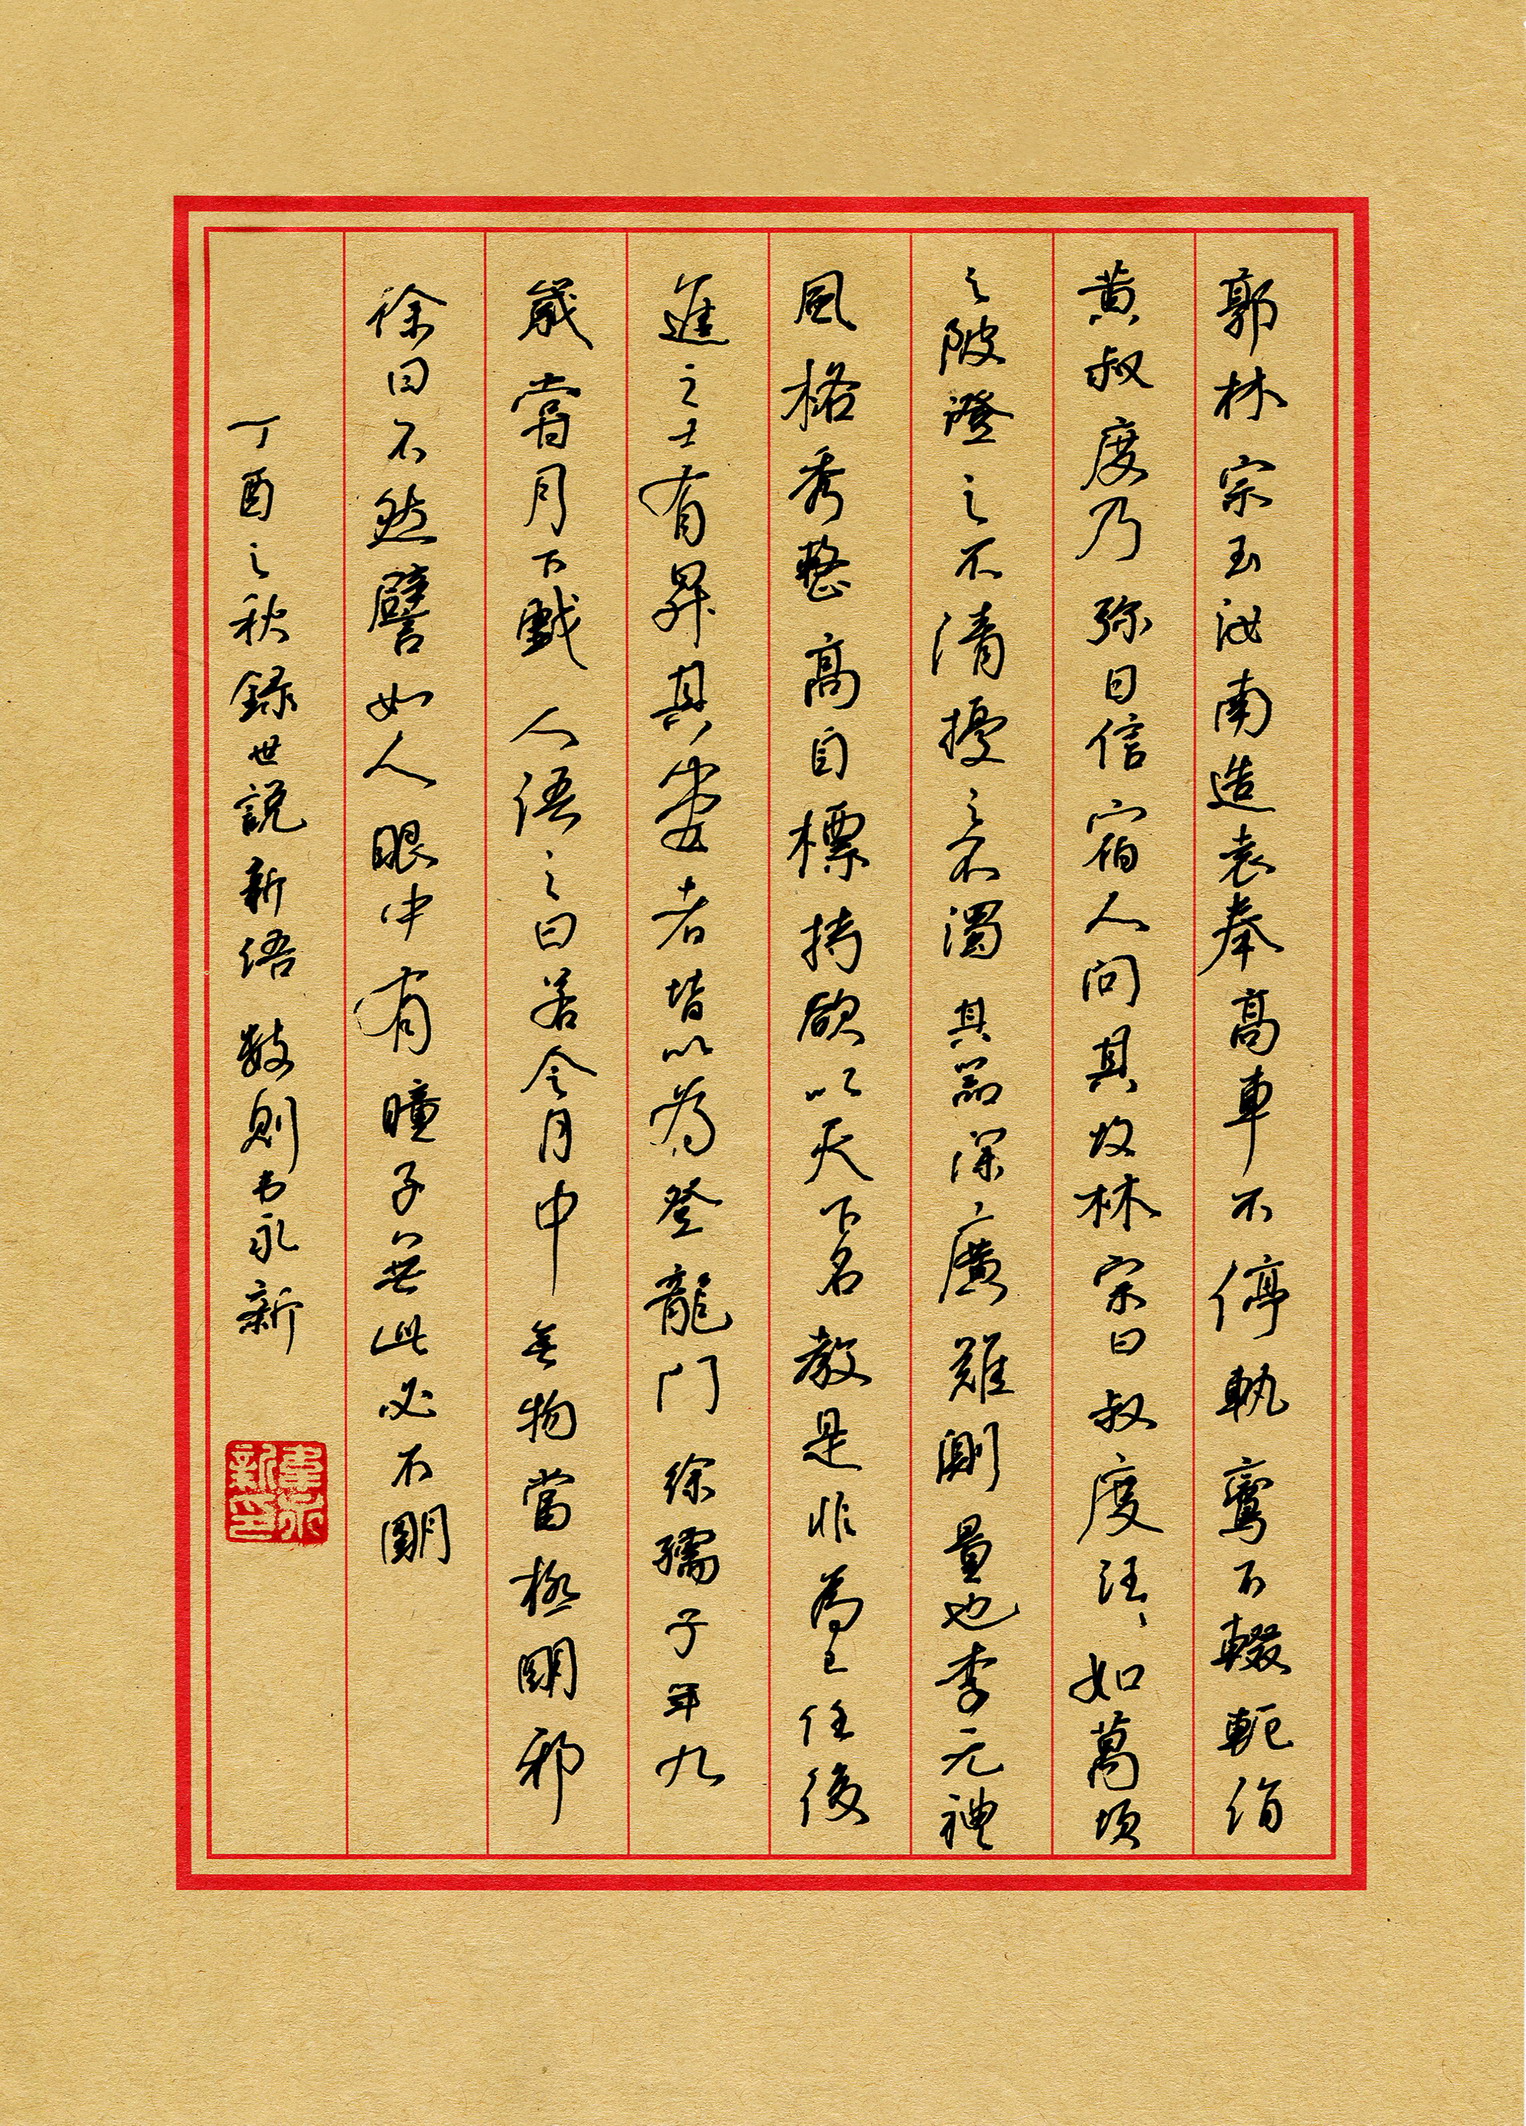 郭林宗至汝南造袁奉高車不停軌鸞不輟軛詣
黄叔度乃弥日信宿人問其故林宗曰叔度汪汪如萬頃
之陂澄之不清擾之不濁其器深廣難測量也李元禮
風格秀整高自標持欲以天下名教是非爲己任後
進之士有昇其堂者皆以為登龍門徐孺子年九
歲嘗月下戲人語之曰若令月中無物當極明邪
徐曰不然譬如人眼中有瞳子無此必不明
丁酉之秋録世説新語数則韦永新